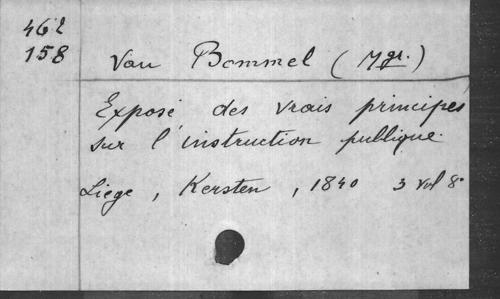 462
158
Van Bommel (Mgr.)
Exposé des vrais principes
sur l'instruction publique.
Liege, Kersten, 1840 3 vol 8°